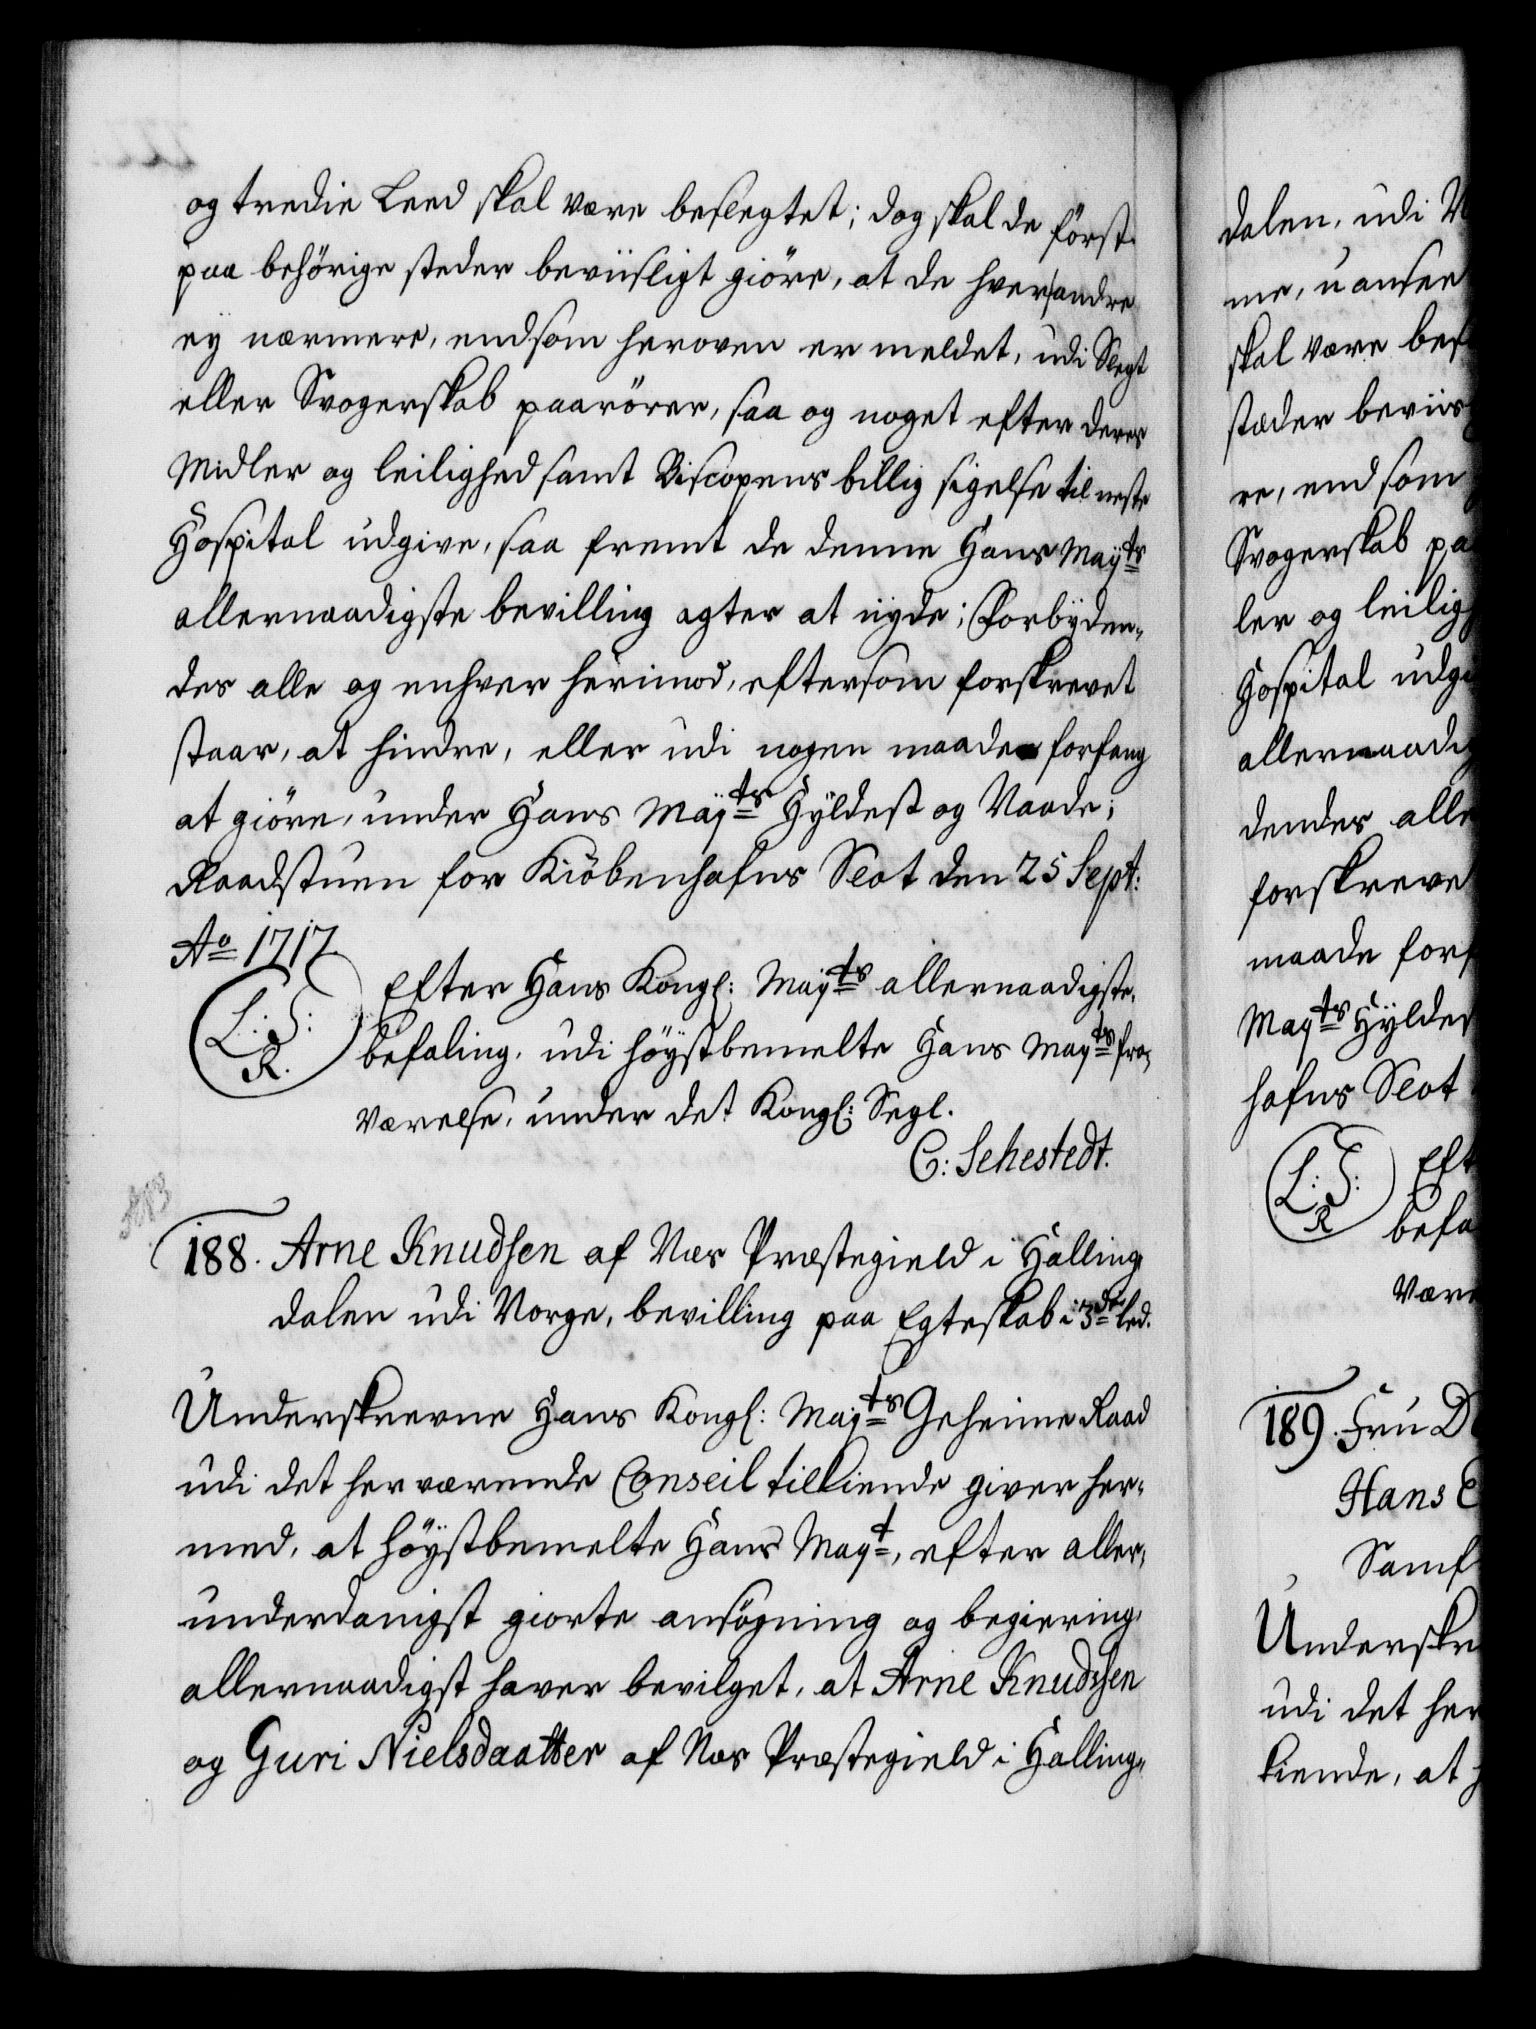 og tredie Leed skal være beslegtet; dog skal de först
paa behörige steder beviisligt giöre, at de hver andre
ey nærmere, end som heroven er meldet, udi Slegt
eller Svogerskab paarörer, saa og noget efter deres
Midler og leilighed samt Biscopens billig sigelse til neste
Hospital udgive, saa fremt de denne Hans Maÿts
allernaadigste bevilling agter at nyde; Forbÿden-
des alle og enhver herimod, eftersom forskrevet
staar, at hindre, eller udi nogen maade forfang
at giöre, under Hans Maÿts Hÿldest og Naade;
Raadstuen for Kiöbenhafns Slot den 25 Sept:
Ao 1717.
L: S:
R.
Efter Hans Kongl: Maÿts allernaadigste
befaling, udi höÿstbemelte Hans Mayts fra-
værelse, under det Kongl: Segl.
C: Sehestedt.
188. Arne Knudsen af Næs Præstegield i Halling-
dalen udi Norge, bevilling paa Egteskab i 3de led.
Underskrevne Hans Kongl: Mayts Geheime Raad
udi det herværende Conseil tilkiende giver her-
med, at höÿstbemelte Hans Mayt, efter aller-
underdanigst giorte ansögning og begiering,
allernaadigst haver bevilget, at Arne Knudsen
og Guri Nielsdaatter af Næs Præstegield i Halling-
dalen, udi N
me, uansee
skal være bes
stæder beviis
re, end som
Svogerskab pa
ler og leilig
Hospital udgi
allernaadig
dendes alle
forskreve
maade forf
Mayts Hÿldes
hafns Slot
L: S:
R
Eft
befa
være
189. Fru D
Hans E
Samf
Underskre
udi det her
kiende, at h